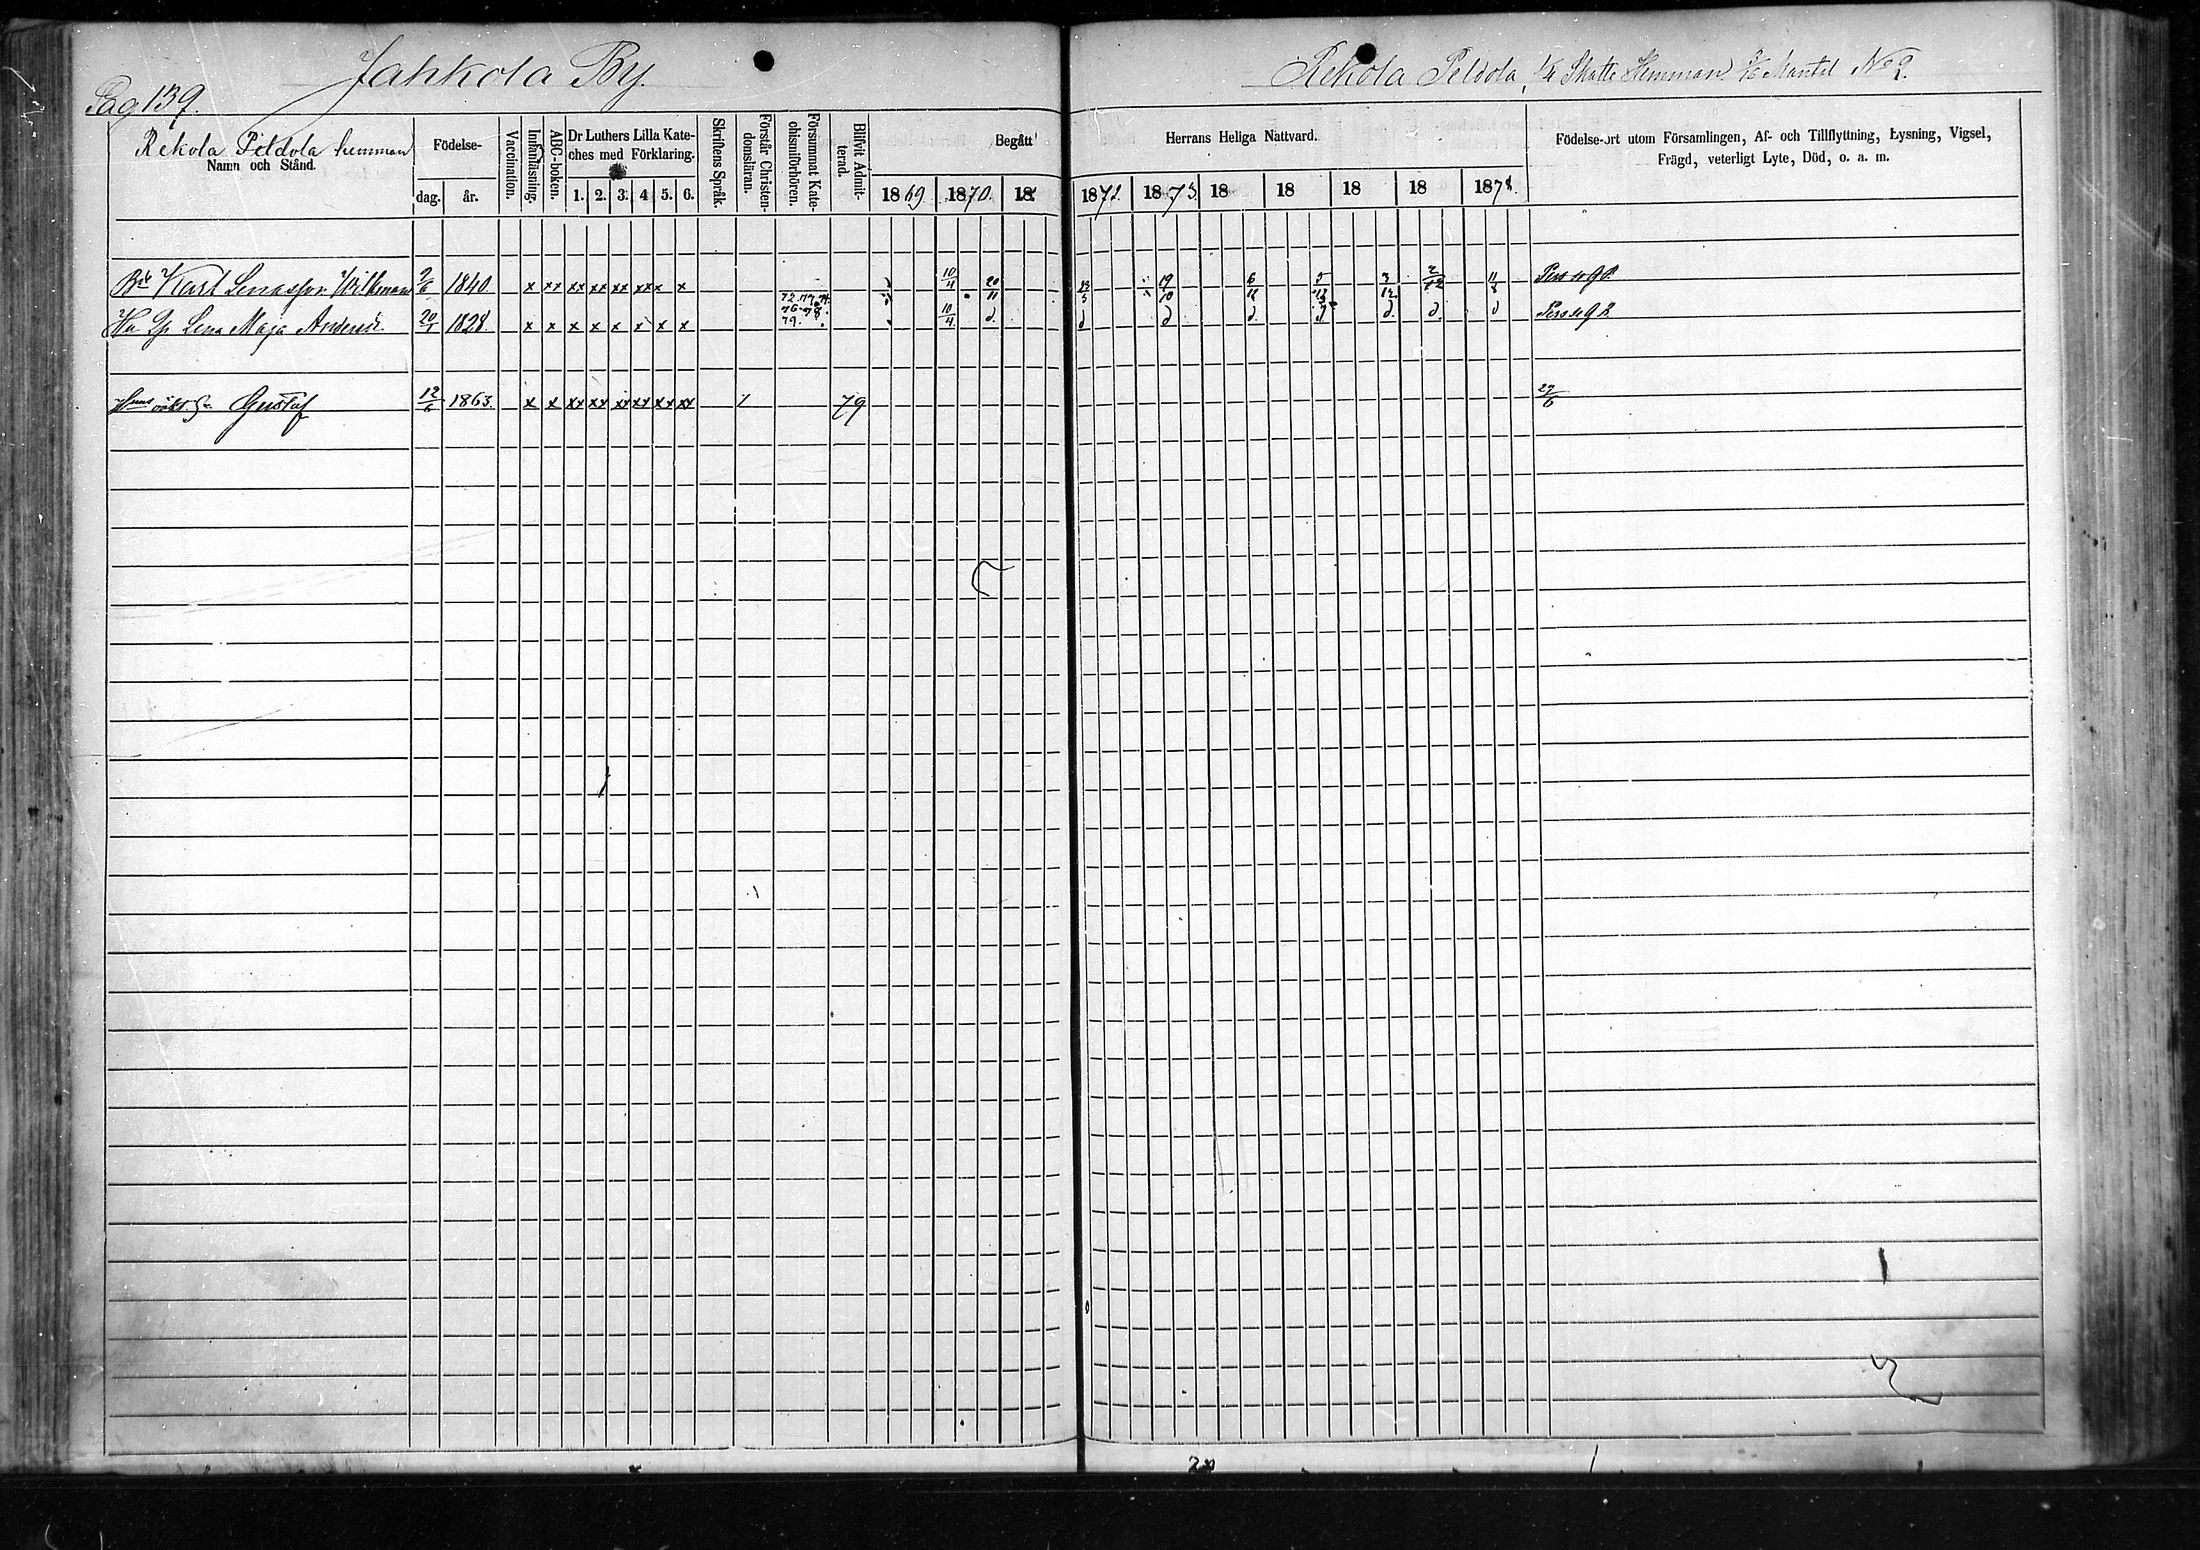 Pag 139.
Jahkola By.
Rekola Peldola, 1/4 Skatte Hemman Mantal No 2.
Rekola Peldola hemman
Namn och Stånd.
Födelse-
dag. år.
Vaccination.
Innanläsning.
ABC-boken.
Dr Luthers Lilla Kate-
ches med Förklaring.
1. 2. 3. 4 5. 6.
Skriftens Språk.
Förstår Christen-
domsläran.
Försummat Kate-
chismiförhören.
Blifvit Admit-
terad.
Begått Herrans Heliga Nattvard.
1869. 1870. 18 1872. 1873. 18 18 18 18 1878.
Födelse-ort utom Församlingen, Af- och Tillflyttning, Lysning, Vigsel,
Frägd, veterligt Lyte, Död, o. a. m.
Karl 1840. x xx xx xx xx xx x x 10/4 20/11 19/10 6/12 5/12 3/12 2/12 11/8
72. 77. 74.
76. 78.
79.
Lena Maja Andersd. 20/1 1828. x x x x x x x x 10/4 d. d d d. d d. d. d
Gustaf 12/6 1863. x x xx xx xx xx xx xx 79 27/6